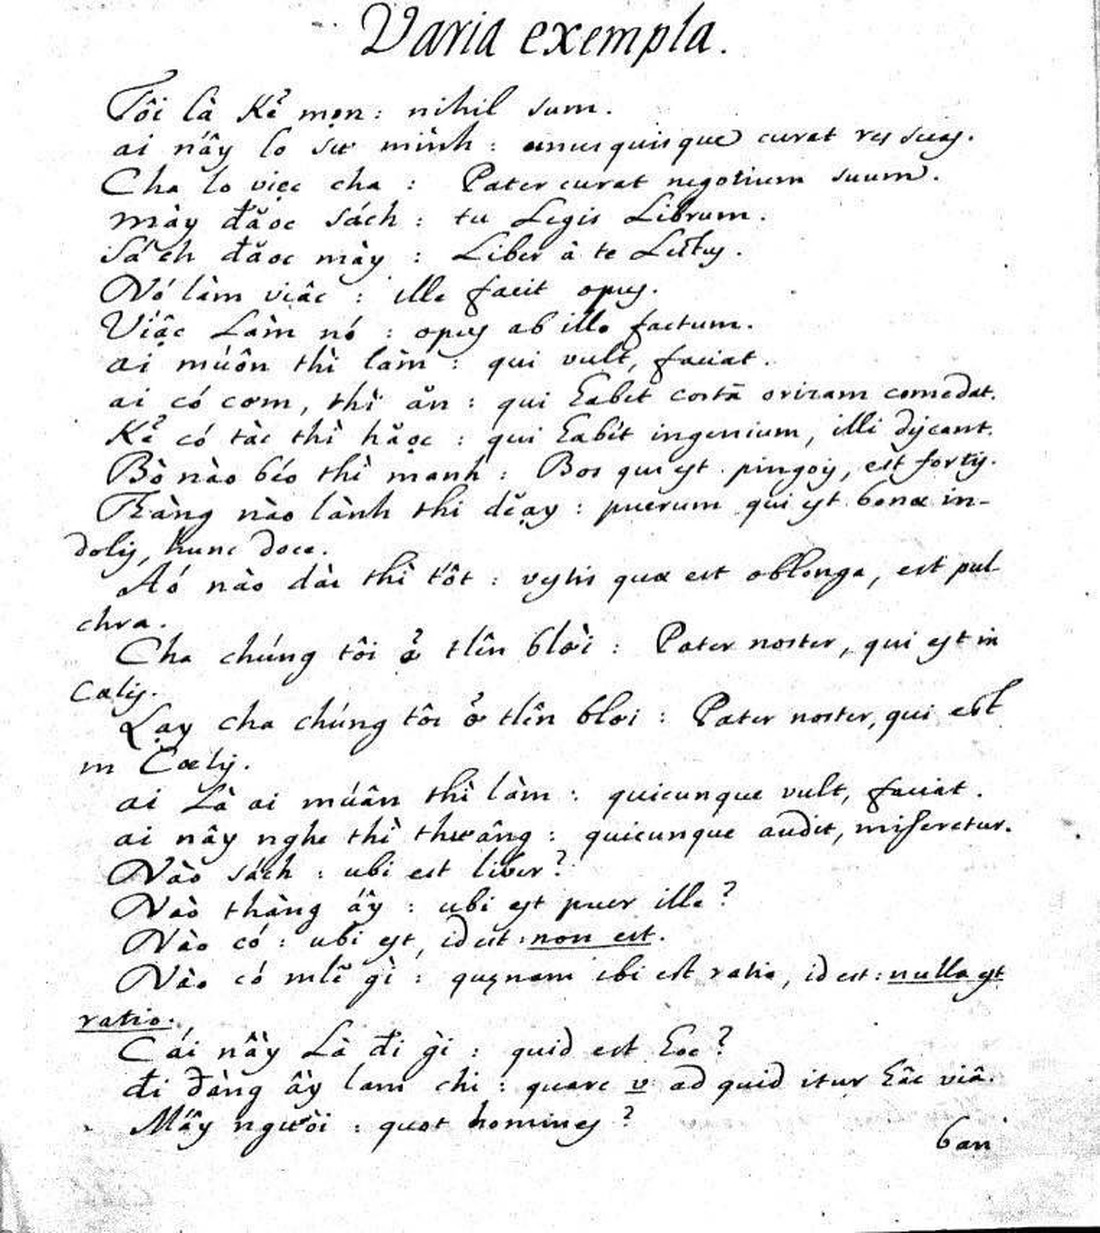 Varia exempla.
Tôi là Kẻ mọn: nihil sum.
ai nấy lo sư mình: unusquisque curat res suas.
Cha lo viẹc cha: Pater curat negotium suum.
mày đăọc sách: tu Legis Librum.
Sách đăọc mày: Liber à te Lectus.
Nó làm viâc: ille facit opus.
Viậc Làm nó: opus ab illo factum.
ai muốn thì làm: qui vult, faciat.
ai có cơm, thì ăn: qui habet coctā orizam comedat.
Kẻ có tài thì hăọc: qui habet ingenium, illi dijcant.
Bò nào béo thì mạnh: Bos qui est pinguis, est fortis.
Thàng nào lành thì dĕạy: puerum qui est bonæ in-
dolis, hunc doce.
Aó nào dài thì tốt: vestis quæ est oblonga, est pul
chra.
Cha chúng tôi ở tlên blời: Pater noster, qui est in
Cœlis.
Lạy cha chúng tôi ở tlên blơi: Pater noster, qui est
in Cœlis.
ai Là ai muấn thì làm: quicunque vult, faciat.
ai nấy nghe thì thương: quicunque audit, misceretur.
Nào sách: ubi est liber?
Nào thàng ấy: ubi est puer ille?
Nào có: ubi est, id est: non est.
Nào có mlẽ gì: quænam ibi est ratio, id est: nulla est
ratio.
Cái nầy Là đi gì: quid est hoc?
đi đàng ấy lam chi: quare v ad quid itur hâc viâ.
Mấy người: quot homines?
ban